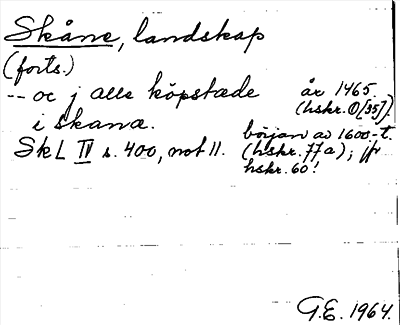 Skåne, landskap
(forts.)
-- oc j alle köpstæde år 1465
(hskr. O[35]).
i skanæ.
början av 1600-t.
SkL IV s. 400, not 11. (hskr. 77a); jfr
hskr. 60!
G.E. 1964.